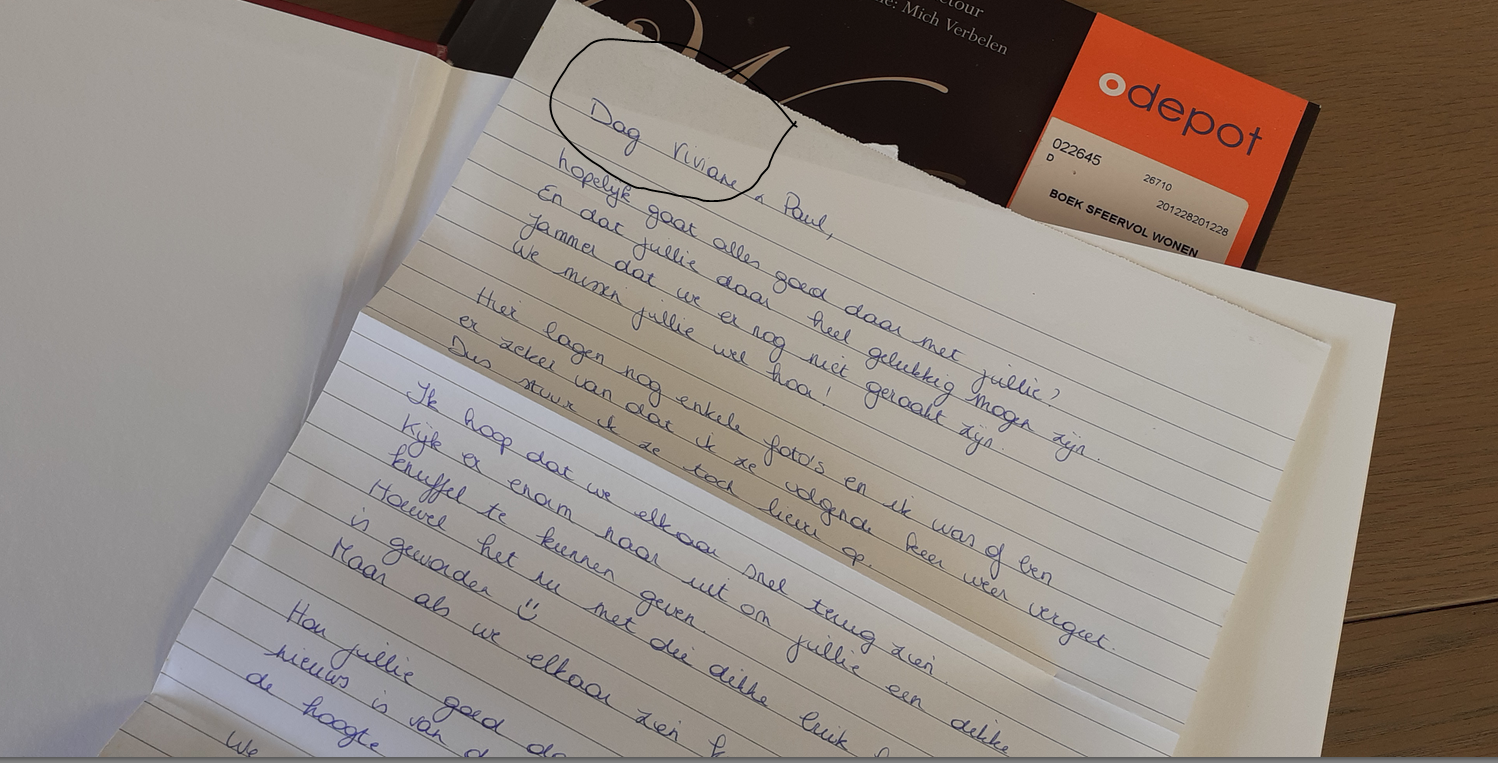 etour
: Mich Verbelen
depot
022645
D
26710
201228201228
BOEK SFEERVOL WONEN
Dag Viviane & Paul,
hopelijk gaat alles goed daar met jullie?
En dat jullie daar heel gelukkig mogen zijn.
Jammer dat we er nog niet geraakt zijn.
We missen jullie wel hoor!
Hier lagen nog enkele foto's en ik was of ben
er zeker van dat ik ze volgende keer weer vergeet.
Dus stuur ik ze toch liever op.
Ik hoop dat we elkaar snel terug zien.
Kijk er enorm naar uit om jullie een dikke
knuffel te kunnen geven.
Hoewel het nu met die dikke buik
is geworden
Maar als we elkaar zien
Hou jullie goed
nieuws is van
de hoogte
We